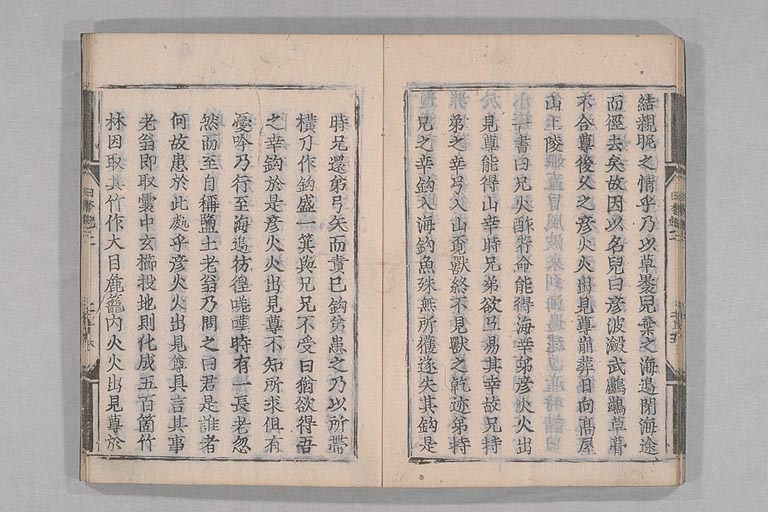 結親昵之情乎乃以草裹兒棄之海邊閉海途
而徑去矣故因以名兒曰彥波瀲武鸕鷀草葺
不合尊後久之彥火火出見尊崩葬日向高屋
山上陵
一書曰兄火酢芹命能得海幸弟彥火火出
見尊能得山幸時兄弟欲互易其幸故兄持
弟之幸弓入山覓獸終不見獸之乾迹弟持
兄之幸鈎入海釣魚殊無所獲遂失其鈎是
時兄還弟弓矢而責己鈎弟患之乃以所帶
橫刀作鈎盛一箕與兄兄不受曰猶欲得吾
之幸鈎於是彥火火出見尊不知所求但有
憂吟乃行至海邊彷徨嗟嘆時有一長老忽
然而至自稱鹽土老翁乃問之曰君是誰者
何故患於此處乎彥火火出見尊具言其事
老翁即取囊中玄櫛投地則化成五百箇竹
林因取其竹作大目麁籠內火火出見尊於